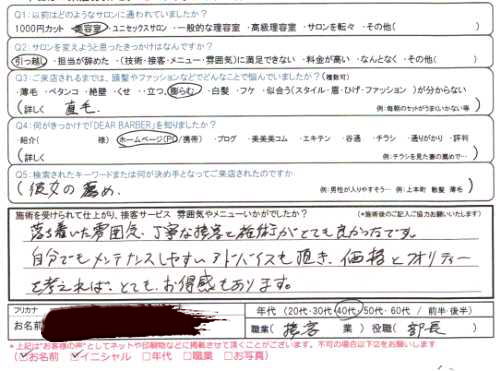 Q1:以前はどのようなサロンに通われていましたか?
1000円カット ・美容室・ユニセックスサロン ・一般的な理容室 ・高級理容室 ・サロンを転々 ・その他( )
Q2:サロンを変えようと思ったきっかけはなんですか?
引っ越し ・担当が辞めた ・(技術・接客・メニュー・雰囲気)に満足できない ・料金が高い ・なんとなく ・その他(
Q3:ご来店されるまでは、頭髪やファッションなどでどんなことで悩んでいましたか?(複数可)
・薄毛 ・ペタンコ ・絶壁 ・くせ ・立つ ・膨らむ ・白髪 ・フケ ・似合う(スタイル・眉・ひげ・ファッション)が分からない
(詳しく 直毛 例:毎朝のセットがうまくいかない等 )
Q4:何がきっかけで「DEAR BARBER」を知りましたか?
・紹介( 様) ・ホームページ(PC/携帯) ・ブログ ・美美美コム ・エキテン ・谷通 ・チラシ ・通りがかり ・評判
(詳しく 例:チラシを見た妻の薦めで…
Q5:検索されたキーワードまたは何が決め手となってご来店されたのですか
(彼女の薦め、 例:男性が入りやすそう… 例:上本町 散髪 薄毛 )
施術を受けられて仕上がり、接客サービス 雰囲気やメニューいかがでしたか? (*施術後のご記入ご協力お願いいたします)
落ち着いた雰囲気、丁寧な接客と施術がとても良かったです。
自分でもメンテナンスしやすいアドバイスも頂き、価格とクオリティー
を考えれば、とても、お得感もあります。
フリカナ
お名前
年代 (20代・30代・40代・50代・60代 / 前半・後半)
職業( 接客 業) 役職( 部長 )
*上記は"お客様の声"としてネットや印刷物などに掲載させて頂くことがございます。不可の場合以下☑をお願いします
(☑お名前 ☑イニシャル □年代 □職業 □お写真)